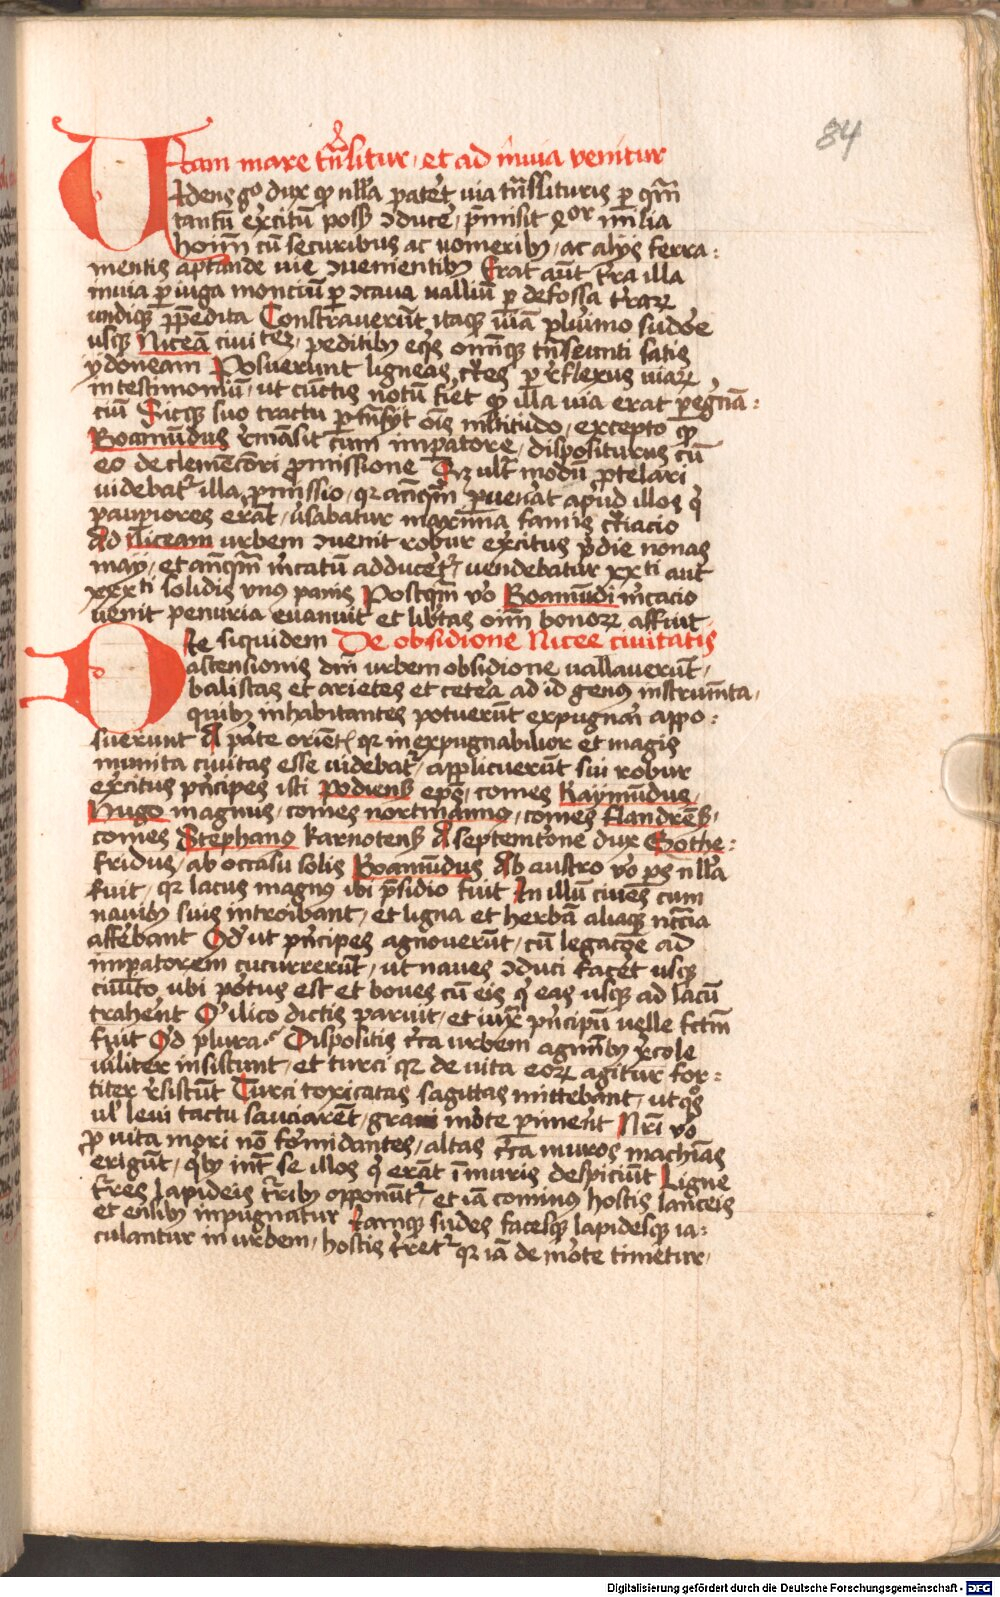 84
Etiam mare tnͣsitur · et ad inuia venitur
Videns gͦ dux qͥ nlla patet via tnͣssituris p qͣm
tantū exc̓itū poss ꝯduce / p̄misit qͣtuor milia
hoīm cū securibus ac vomeribꝫ / ac alijs ferra:
mentis aptande vie ꝯuenientibꝫ Erat aūt tr̄a illa
inuia p iuga monciū p ꝯcaua valliū p defossa tr̄aꝝ
undiqꝫ p̄pedita Construxerūt itaqꝫ viā plurimo sudore
usqꝫ Niceā ciuitꝫ / peditibꝫ eqͥs omīqꝫ tnͣseunti satis
ydoneam Posuerunt ligneas cͬces p reflexus viaꝝ
in testimoniū / ut cunctis notū fiet qͥ illa via erat peg̓nā:
ciū Sicqꝫ suo tractu p̄tnͣsijt oīs mltitudo / excepto qͥ
Boamūdus remāsit cum impatore / dispositurus cū
eo de clemēcori pmissione Sꝫ ultͣ modū ptelari
videbatͬ illa pmissio / qꝛ anteqͣm puenat apud illos qͥ
paupiores erāt / vsabatur maxima famis cͬciacio
Ad Niceam urbem ꝯuenit robur exc̓itus pdie nonas
may / et anqͣm mc̓atū adducetͬ / vendebatur xx ti aut
xxx ti solidis vnꝯ panis Postqͣm vͦo Boamūdi mc̓acio
venit penuria euanuit et libtas oīm bonoꝝ affuit ·
Die siquidem De obsidione Nicee ciuitatis
ascensionis dnī urbem obsidione vallauerūt /
balistas et arietes et cetera ad id genꝯ instrumta /
quibꝫ inhabitantes potuerūt expugnari appo:
suerunt A pate orient qꝛ inexpugnabilior et magis
munita ciuitas esse videbatͬ / applicuerūt sui robur
exc̓itus pncipes isti Podiens epͥs / comes Raymūdus /
Hugo magnus / comes nortmannꝯ / comes flandrēs /
comes Stephanꝯ karnotens A septemtone dux Gothe:
fridus / ab occasu solis Boamūdus Ab austro vͦo ps nlla
fuit / qꝛ lacus magnꝯ ibi psidio fuit In illū ciues cum
nauibꝫ suis introibant / et ligna et herbā aliaqꝫ nccīa
afferebant Qd ut pncipes agnouerūt / cū legacoe ad
impatorem cucurrerūt / ut naues ꝯduci facet usqꝫ
ciuito ubi portus est et boues cū eis qͥ eas usqꝫ ad lacū
trahent Qͥ ilico dictis paruit / et iuxͣ pncipū velle fctm
fuit Qd plura? Dispositis cͬca urbem agminbꝫ recole
viliter insistunt / et turci qꝛ de vita eoꝝ agitur for:
titer resistūt Turci toxicatas sagittas mittebant / ut qͦs
ul' leui tactu sauciarēt / graui morte pimēt Nrī vͦo
p vita mori nō formidantes / altas cͬca muros machīas
erigūt / qͥbꝫ int se illos qͥ erāt ī muris despiciūt Ligne
tͬres lapideis tͬribꝫ opponūtͬ / et iā cominꝯ hostis lanceis
et ensibꝫ inpugnatur Namqꝫ sudes facesqꝫ lapidesqꝫ ia:
culantur in urbem / hostis tͬretͬ qꝛ iā de morte timetur /
Digitalisierung gefördert durch die Deutsche Forschungsgemeinschaft - DFG